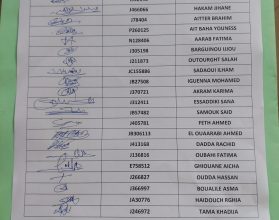 J466066 HAKAM JIHANE
J78404 AITTER BRAHIM
P260125 AIT BAHA YOUNESS
N128406 AARAB FATIMA
J305198 BARGUINOU IJJOU
J211873 OUTOURGHT SALAH
JC155886 SADAOUI ILHAM
JB27508 IGUENNA MOHAMED
J370721 AKRAM KARIMA
J312411 ESSADDIKI SANA
JB57482 SAMOUK SAID
J405781 PETH AHMED
JB306113 EL OUAARABI AHMED
J413168 DADDA RACHID
J136816 OUBAHI FATIMA
E758512 GHIOUANE AICHA
J266827 OUDDA HASSAN
J366997 BOUALILE ASMA
JA30776 HAIDOUCH RGHIA
J246972 TAMA KHADIJA